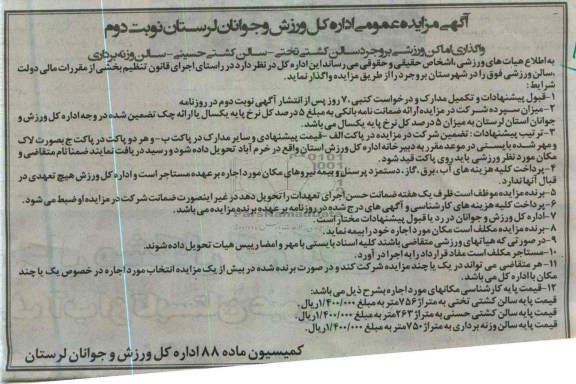 آگهی مزایده عمومی اداره کل ورزش و جوانان لرستان نوبت دوم
واگذاری اماکن ورزشی بروجرد سالن کشتی تختی - سالن کشتی حسینی - سالن وزنه برداری
به اطلاع هیات های ورزشی، اشخاص حقیقی و حقوقی می رساند این اداره کل در نظر دارد در راستای اجرای قانون تنظیم بخشی از مقررات مالی دولت
،سالن ورزشی فوق را در شهرستان بروجرد را از طریق مزایده واگذار نماید.
شرایط :
۱-قبول پیشنهادات و تکمیل مدارک و درخواست کتبی ۷۰ روز پس از انتشار آگهی نوبت دوم در روزنامه
۲-میزان سپرده شرکت در مزایده ارائه ضمانت نامه بانکی به مبلغ ۵ درصد کل نرخ پایه یکسال یا ارائه چک تضمین شده در وجه اداره کل ورزش و
جوانان استان لرستان به میزان ۵ درصد کل نرخ پایه یکسال می باشد.
۳-ترتیب پیشنهادات : تضمین شرکت در مزایده در پاکت الف - قیمت پیشنهادی و سایر مدارک در پاکت ب - و هر دو پاکت در پاکت ج بصورت لاک
و مهر شده بایستی در موعد مقرر به دبیرخانه اداره کل ورزش استان واقع در خرم آباد تحویل داده شود و رسید دریافت نمایند ضمنا نام متقاضی و
مکان مورد نظر ورزشی باید روی پاکت قید شود.
۴-پرداخت کلیه هزینه های آب ، برق ، گاز ، دستمزد پرسنل و بیمه نیروهای مکان مورد اجاره بر عهده مستاجر است و اداره کل ورزش هیچ تعهدی در
قبال آنها ندارد.
۵-برنده مزایده موظف است ظرف یک هفته ضمانت حسن اجرای تعهدات را تحویل دهد در غیر اینصورت ضمانت شرکت در مزایده او ضبط می شود.
۶-پرداخت کلیه هزینه های کارشناسی و آگهی های درج شده در روزنامه بر عهده برنده مزایده می باشد.
۷-اداره کل ورزش و جوانان در رد یا قبول پیشنهادات مختار است.
۸-برنده مزایده مکلف است مکان مورد اجاره خود را بیمه نماید.
۹-در صورتی که هیاتهای ورزشی متقاضی باشند کلیه اسناد بایستی با مهر و امضا رییس هیات تحویل داده شوند.
۱۰-مستاجر مکلف است مفاد قرارداد را به اجرا در آورد.
۱۱-هر متقاضی می تواند در یک یا چند مزایده شرکت کند و در صورت برنده شدن در بیش از یک مزایده انتخاب مورد اجاره در خصوص یک یا چند
مکان با اداره کل می باشد.
۱۲-قیمت پایه کارشناسی مکانهای مورد اجاره بشرح ذیل می باشد:
قیمت پایه سالن کشتی تختی به متراژ ۷۵۶ متر به مبلغ ۱/۴۰۰/۰۰۰ ریال.
قیمت پایه سالن کشتی حسنی به متراژ ۲۶۳ متر به مبلغ ۱/۴۰۰/۰۰۰ ریال.
قیمت پایه سالن وزنه برداری به متراژ ۷۵۰ متر به مبلغ ۱/۴۰۰/۰۰۰ ریال.
کمیسیون ماده ۸۸ اداره کل ورزش و جوانان لرستان